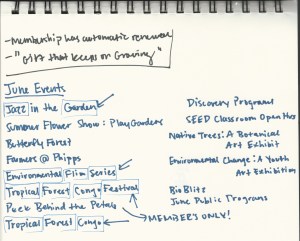 - Membership has automatic renewal
- "Gift that keeps on Growing"
June Events
Jazz in the Garden
Summer Flower Show: PlayGardens
Butterfly Forest
Farmers @ Phipps
Environmental Film Series
Tropical Forest Congo Festival
Peek Behind the Petals
Tropical Forest Congo
→ MEMBERS ONLY!
Discovery Programs
SEED Classroom Open Hrs
Native Trees: A Botanical
Art Exhibit
Environmental Change: A Youth
Art Exhibition
BioBlitz
June Public Programs